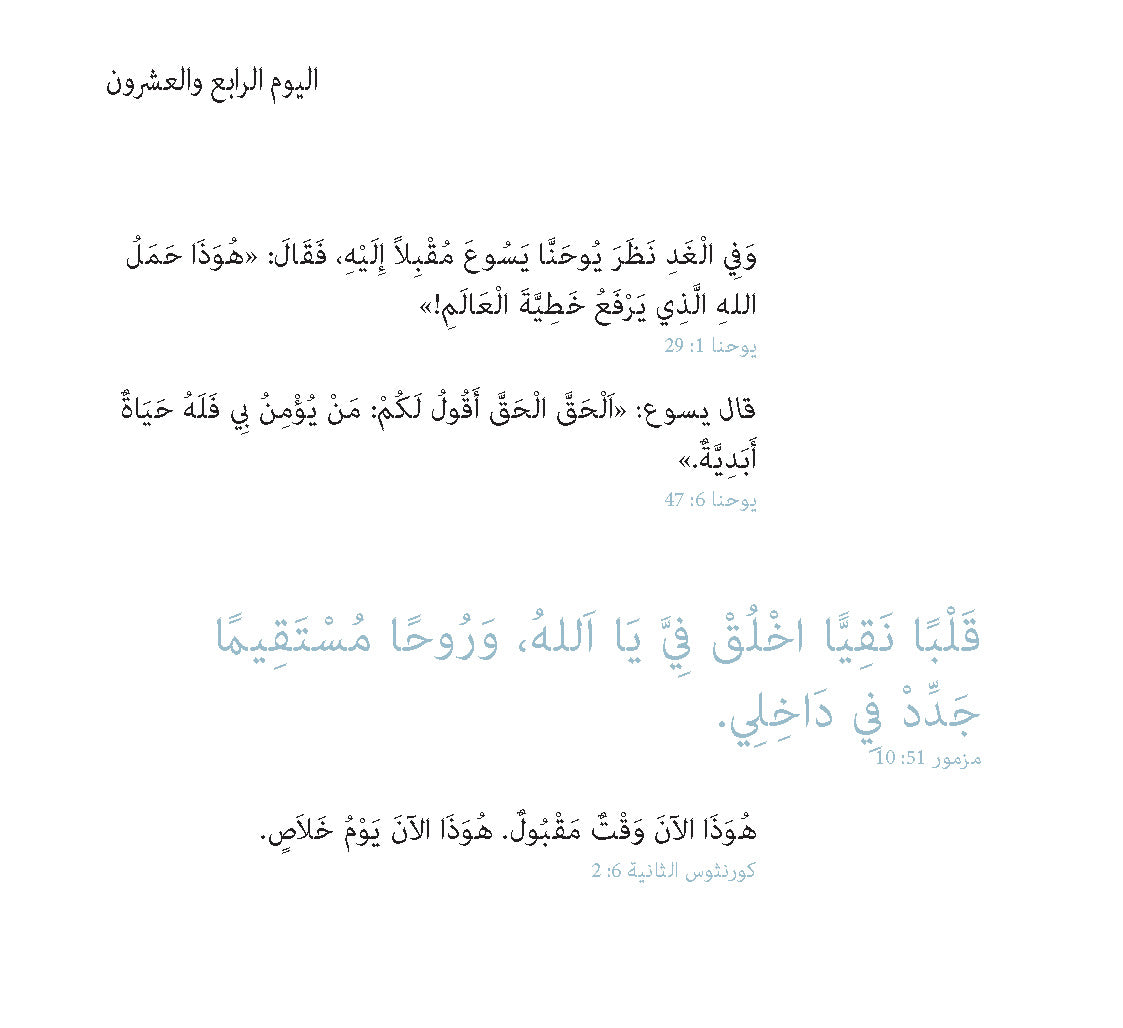 اليوم الرابع والعشرون
وَفِي الْغَدِ نَظَرَ يُوحَنَّا يَسُوعَ مُقْبِلاً إِلَيْهِ، فَقَالَ: «هُوَذَا حَمَلُ
اللهِ الَّذِي يَرْفَعُ خَطِيَّةَ الْعَالَمِ!»
يوحنا 1: 29
قال يسوع: «اَلْحَقَّ الْحَقَّ أَقُولُ لَكُمْ: مَنْ يُؤْمِنُ بِي فَلَهُ حَيَاةٌ
أَبَدِيَّةٌ.»
يوحنا 6: 47
قَلْبًا نَقِيًّا اخْلُقْ فِيَّ يَا اَللهُ، وَرُوحًا مُسْتَقِيمًا
جَدِّدْ فِي دَاخِلِي.
مزمور 51: 10
هُوَذَا الآنَ وَقْتٌ مَقْبُولٌ. هُوَذَا الآنَ يَوْمُ خَلاَصٍ.
كورنثوس الثانية 6: 2